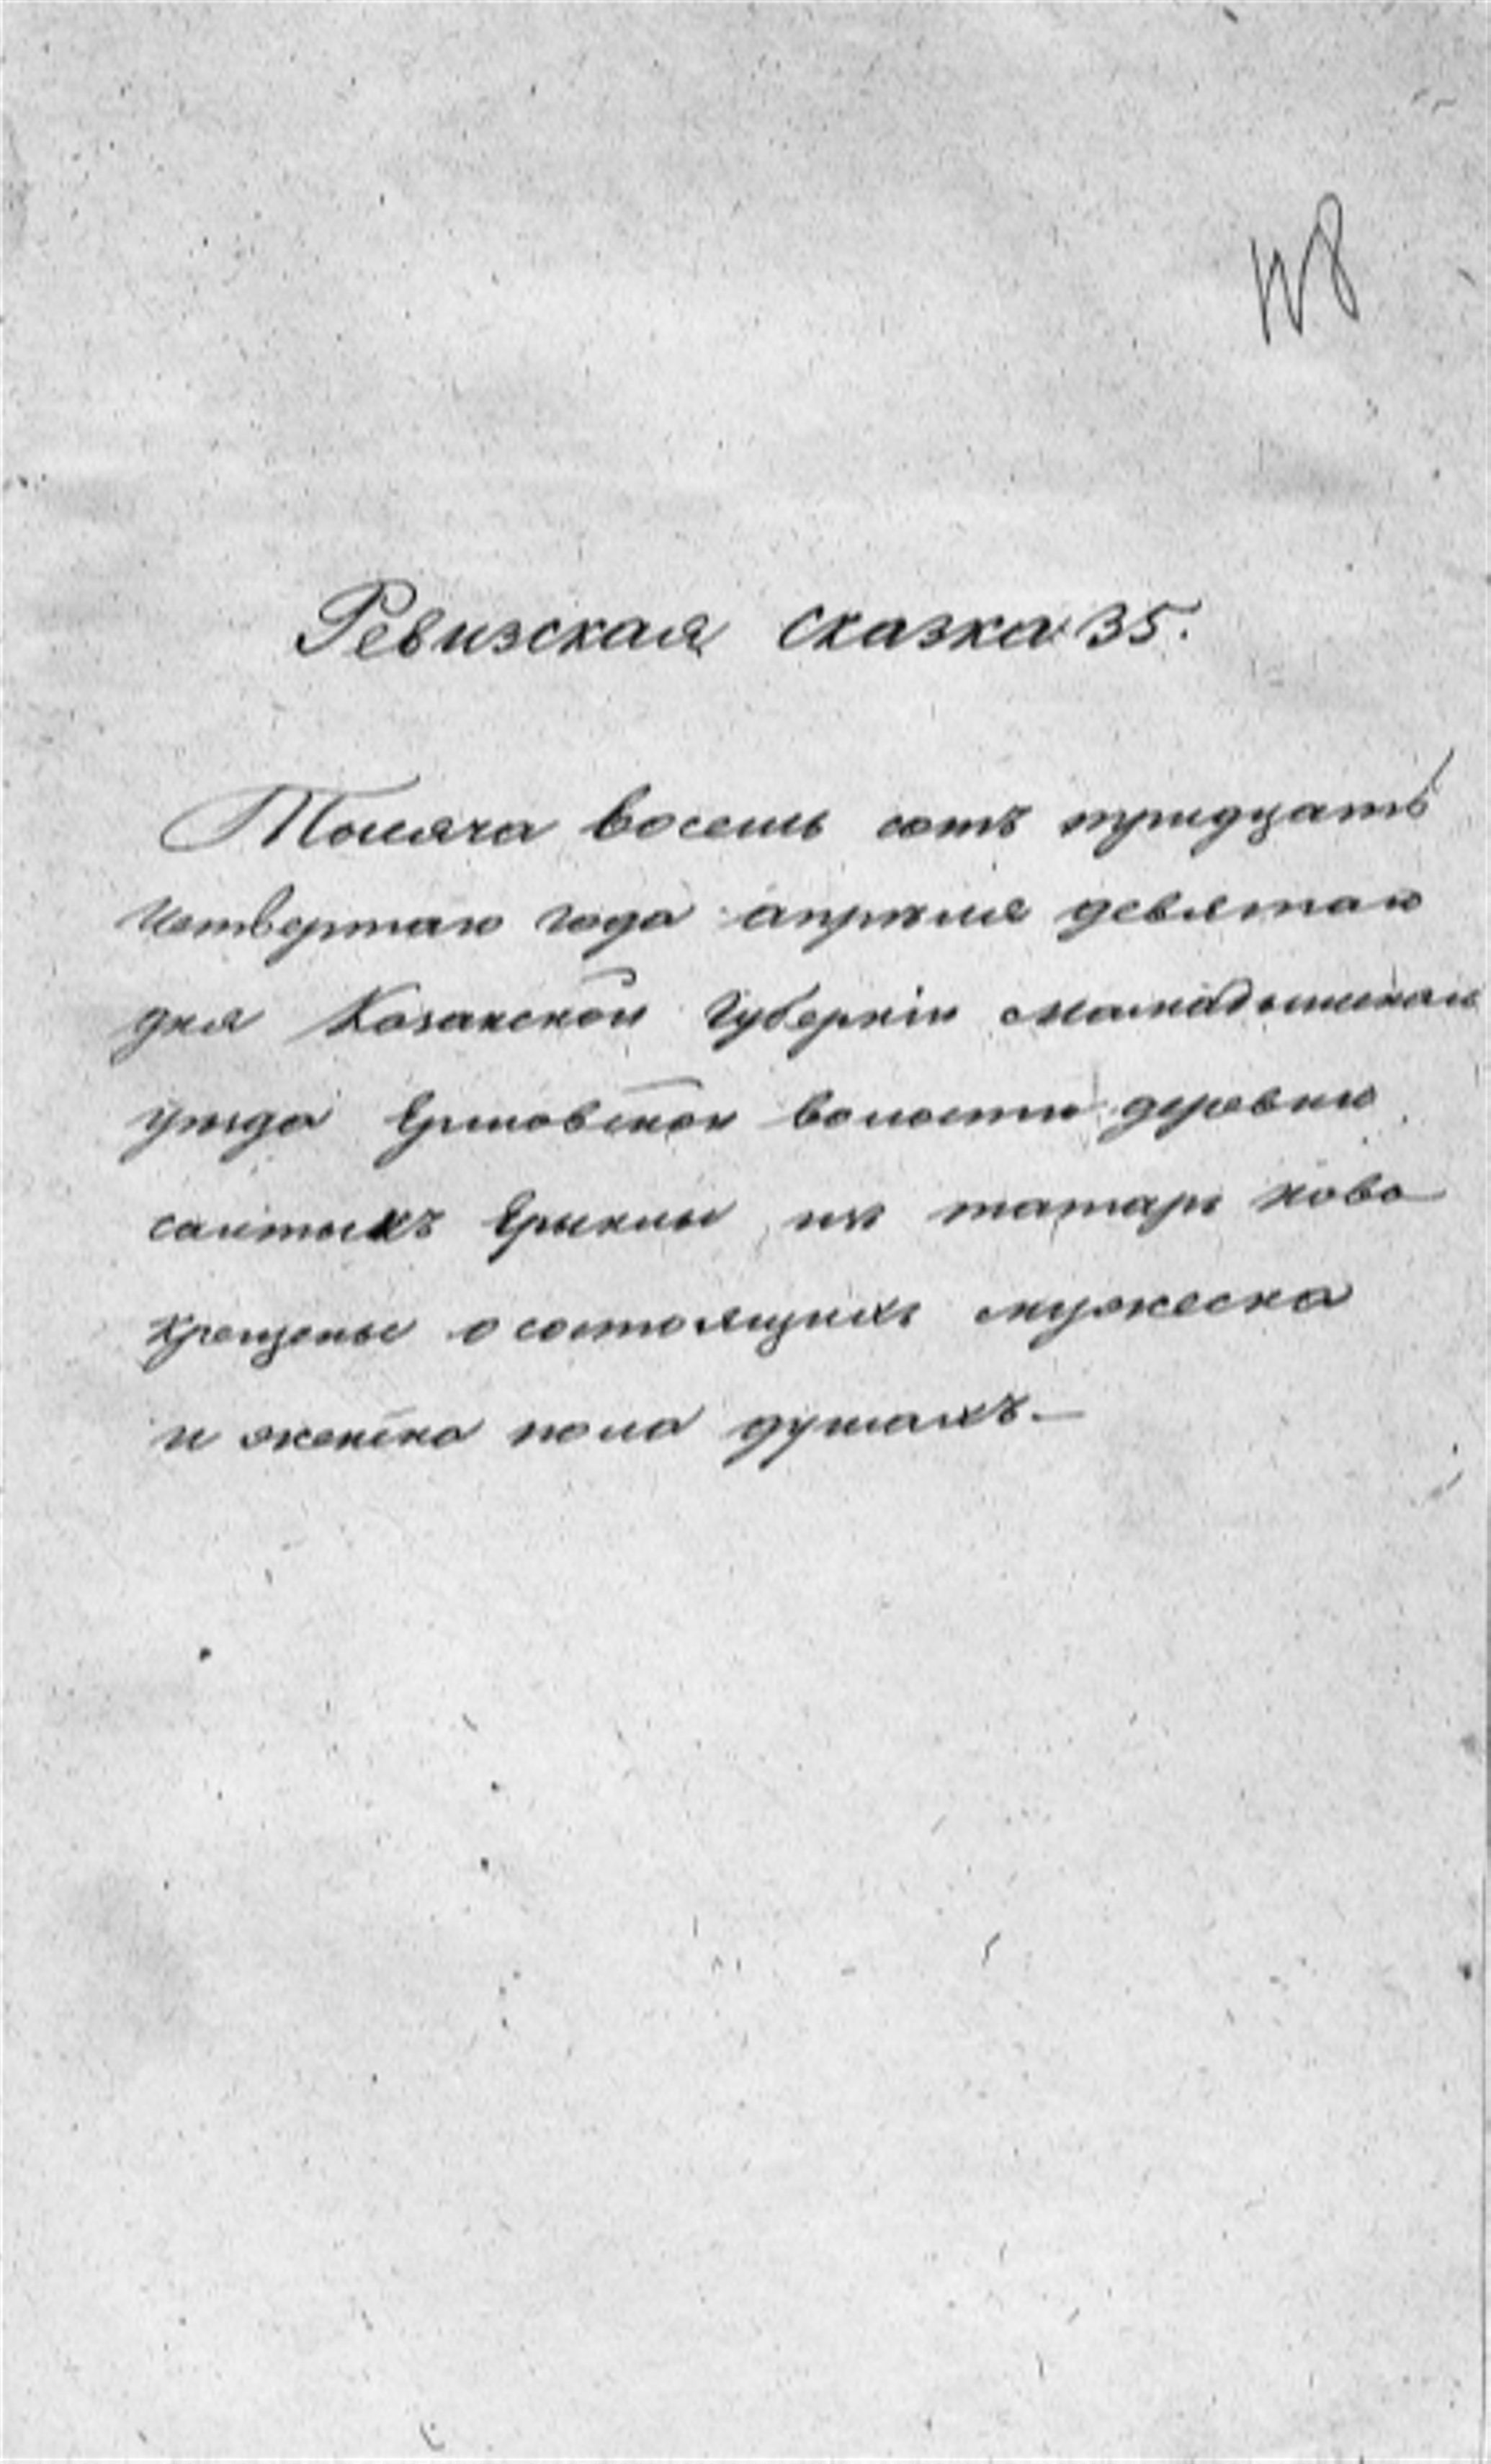 118
Ревизская сказка 35.
Тысяча восемь сотъ тридцать
четвертаго года апреля девятаго
дня Казанской Губерніи Мамадышскаго
уезда волости деревни
изъ татаръ ново
крещены о состоящихъ мужеска
и женска пола душахъ.—